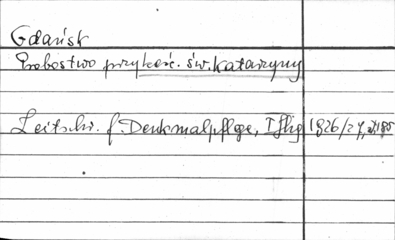 Gdańsk
Probostwo przy kośc. św. Katarzyny
Zeitschr. f. Denkmalpflege, I Jhg 1926/27,